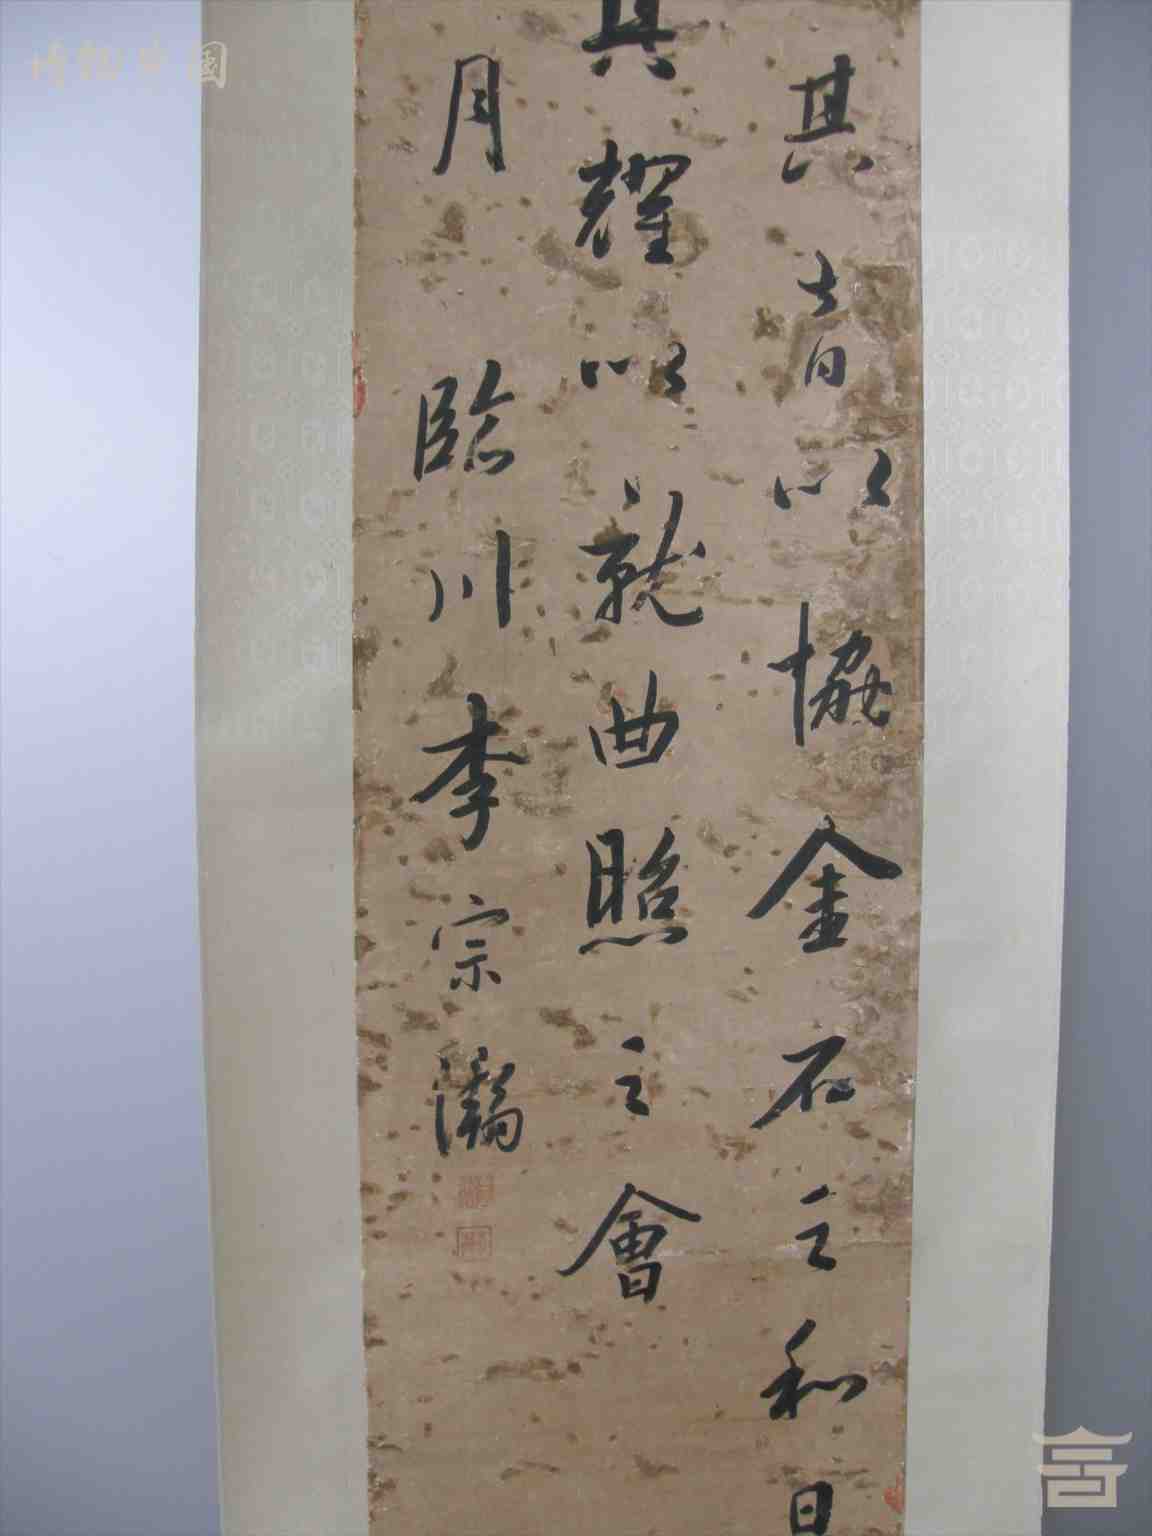 博物中國
其音以協金石之和日
其耀以就曲照之會
月臨川李宗瀚